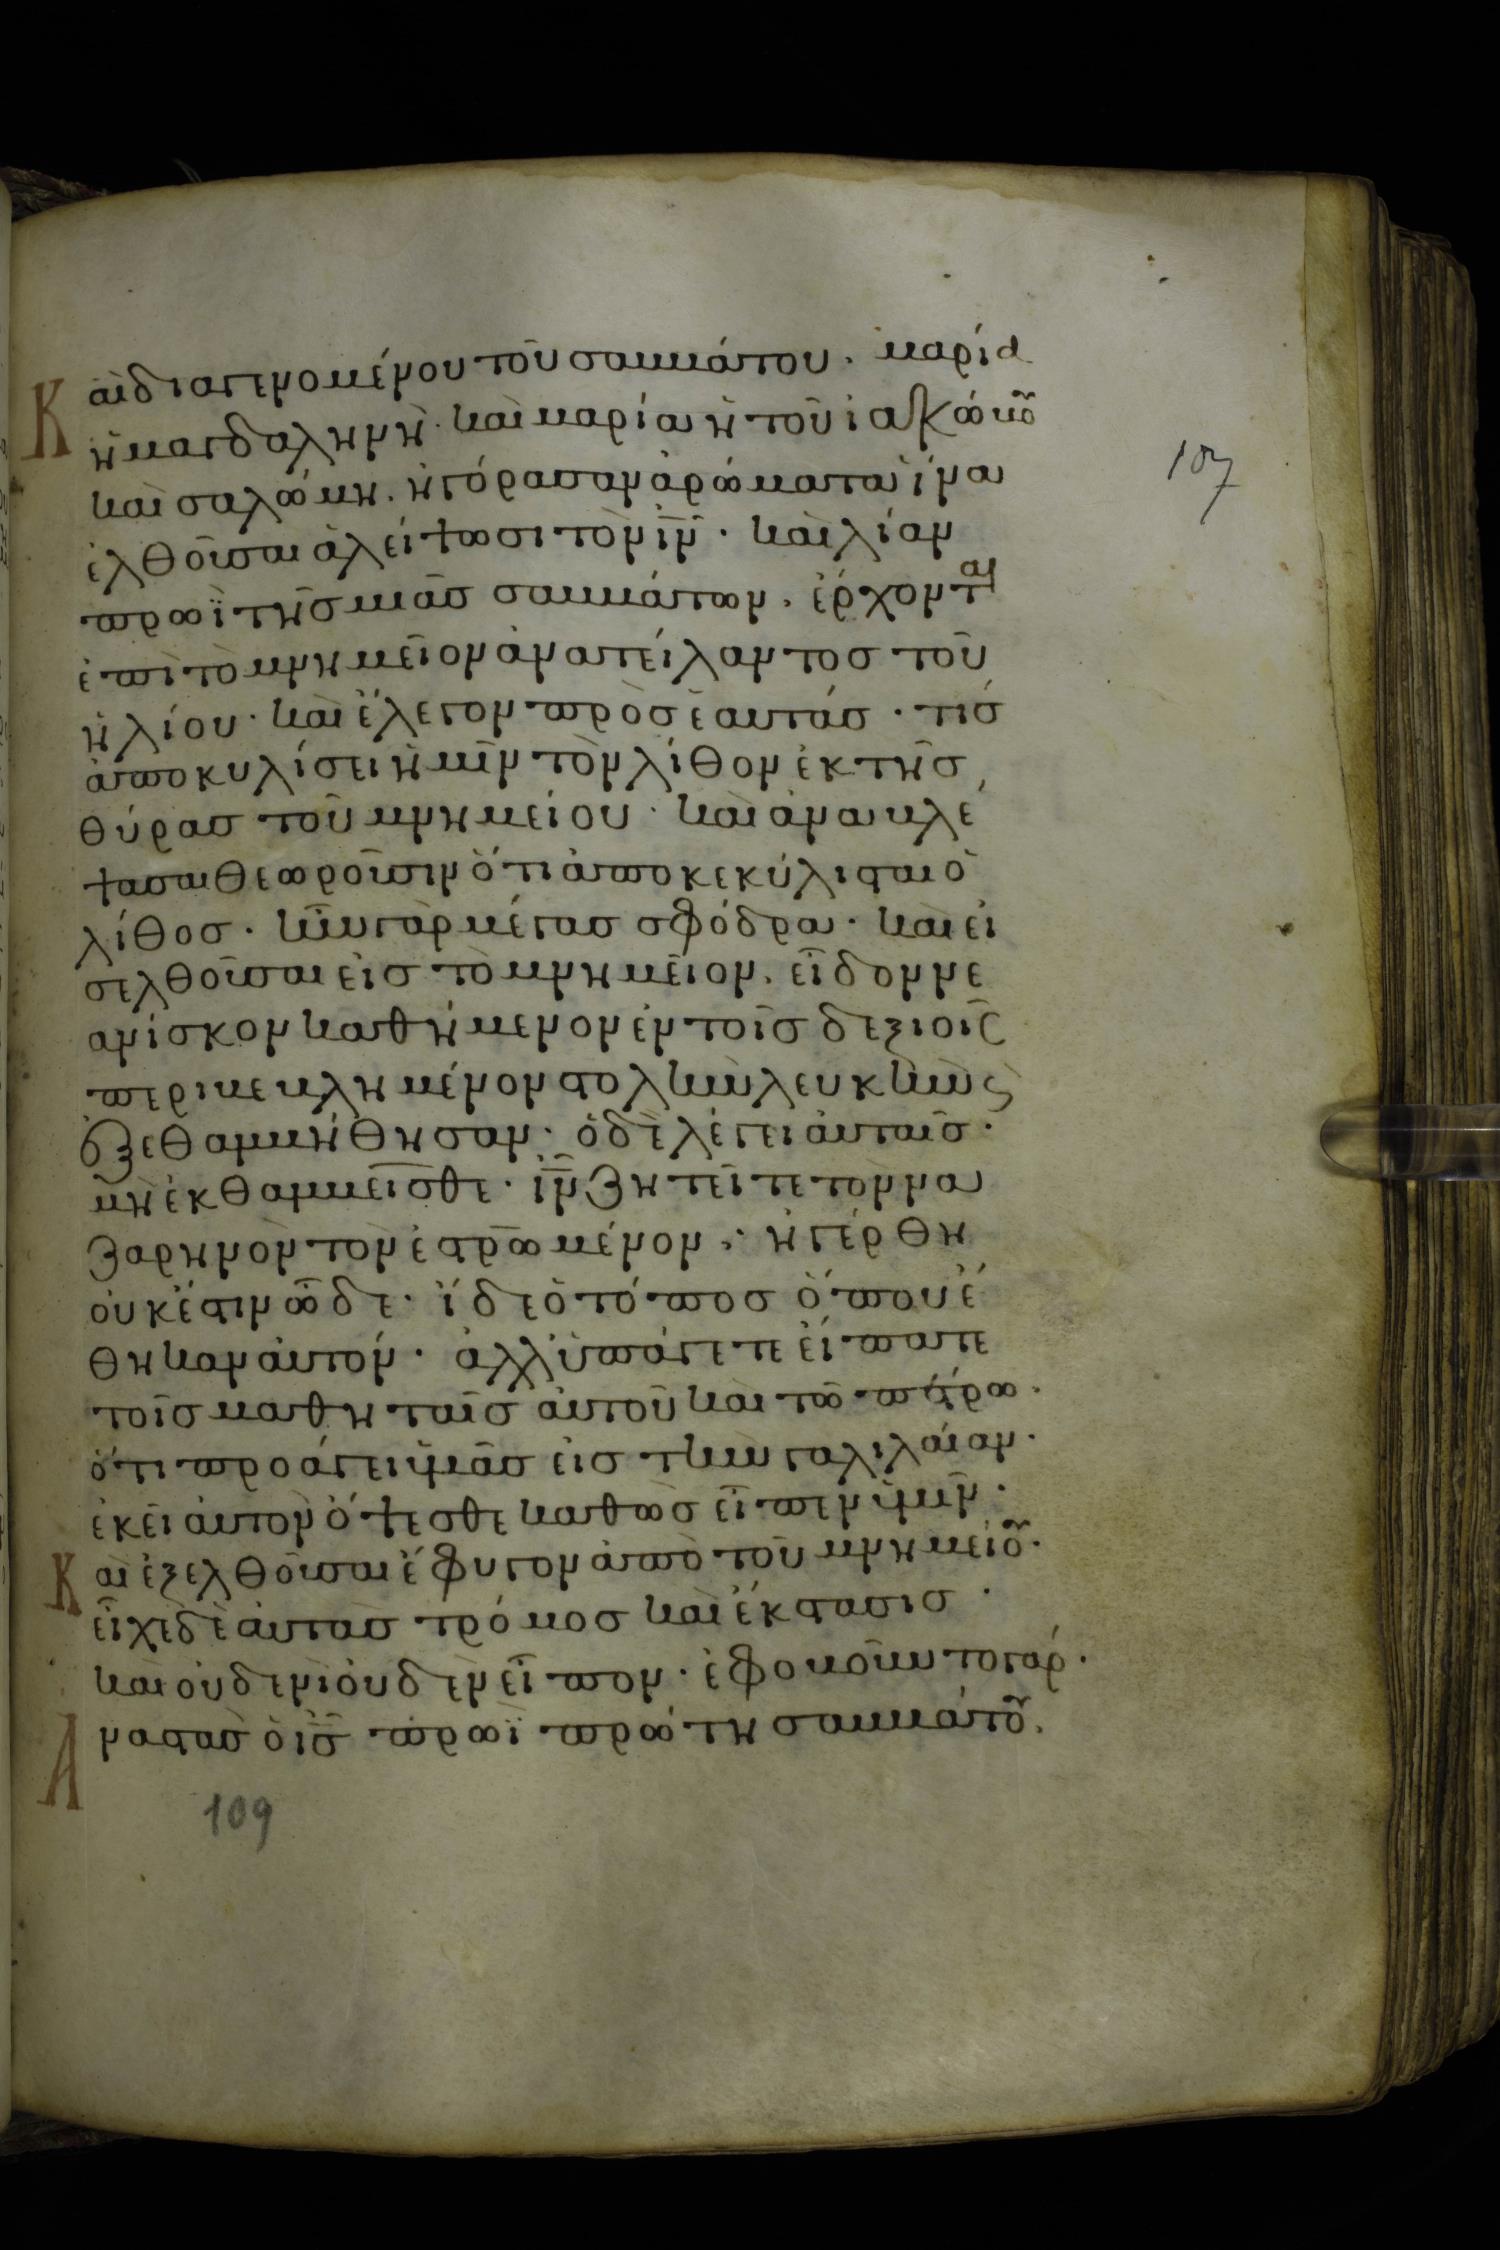 Καὶ διαγενομένου τοῦ σαββάτου· μαρία
ἡ μαγδαληνὴ· καὶ μαρία ἡ τοῦ ἰακώβου
καὶ σαλώμη· ἠγόρασαν ἀρώματα ἵνα
ἐλθοῦσαι ἀλείψωσι τὸν ἰν̅· καὶ λίαν
πρωῒ τῆς μιᾶς σαββάτων· ἔρχονται
ἐπὶ τὸ μνημεῖον ἀνατείλαντος τοῦ
ἡλίου· καὶ ἔλεγον πρὸς ἑαυτάς· τίς
ἀποκυλίσει ἡμῖν τὸν λίθον ἐκ τῆς
θύρας τοῦ μνημείου· καὶ ἀναβλέ
ψασαι θεωροῦσιν ὅτι ἀποκεκύλισται ὁ
λίθος· ἦν γὰρ μέγας σφόδρα· καὶ εἰ
σελθοῦσαι εἰς τὸ μνημεῖον· εἶδον νε
ανίσκον καθήμενον ἐν τοῖς δεξιοῖς
περιβεβλημένον στολὴν λευκὴν κ(αὶ)
ἐξεθαμβήθησαν· ὁ δὲ λέγει αὐταῖς·
μὴ ἐκθαμβεῖσθε· ἰν̅ ζητεῖτε τὸν να
ζαρηνὸν τὸν ἐσταυρωμένον· ἠγέρθη
οὐκ ἔστιν ὧδε· ἴδε ὁ τόπος ὅπου ἔ
θηκαν αὐτόν· ἀλλ' ὑπάγετε εἴπατε
τοῖς μαθηταῖς αὐτοῦ καὶ τῶ πέτρω·
ὅτι προάγει ὑμᾶς εἰς τὴν γαλιλαίαν·
ἐκεῖ αὐτὸν ὄψεσθε καθὼς εἶπεν ὑμῖν·
Καὶ ἐξελθοῦσαι ἔφυγον ἀπὸ τοῦ μνημείου·
εἶχε δὲ αὐτὰς τρόμος καὶ ἔκστασις·
καὶ οὐδενὶ οὐδὲν εἶπον· ἐφοβοῦντο γάρ·
Ἀναστὰς ὁ ἰς̅ πρωῒ πρώτη σαββάτου·
107
109